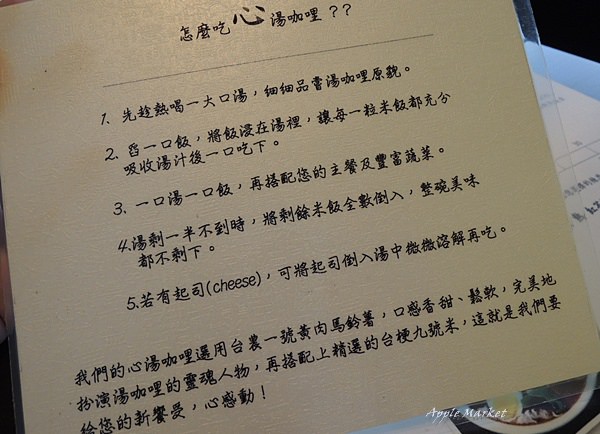 怎麼吃心湯咖哩??
1. 先趁熱喝一大口湯,細細品嘗湯咖哩原貌。
2. 舀一口飯,將飯浸在湯裡,讓每一粒米飯都充分
吸收湯汁後一口吃下。
3. 一口湯一口飯,再搭配您的主餐及豐富蔬菜。
4.湯剩一半不到時,將剩餘米飯全數倒入,整碗美味
都不剩下。
5.若有起司(cheese),可將起司倒入湯中微微溶解再吃。
我們的心湯咖哩選用台農一號黃肉馬鈴薯,口感香甜、鬆軟,完美地
扮演湯咖哩的靈魂人物,再搭配上精選的台梗九號米,這就是我們要
給您的新饗受,心感動!
Apple Market